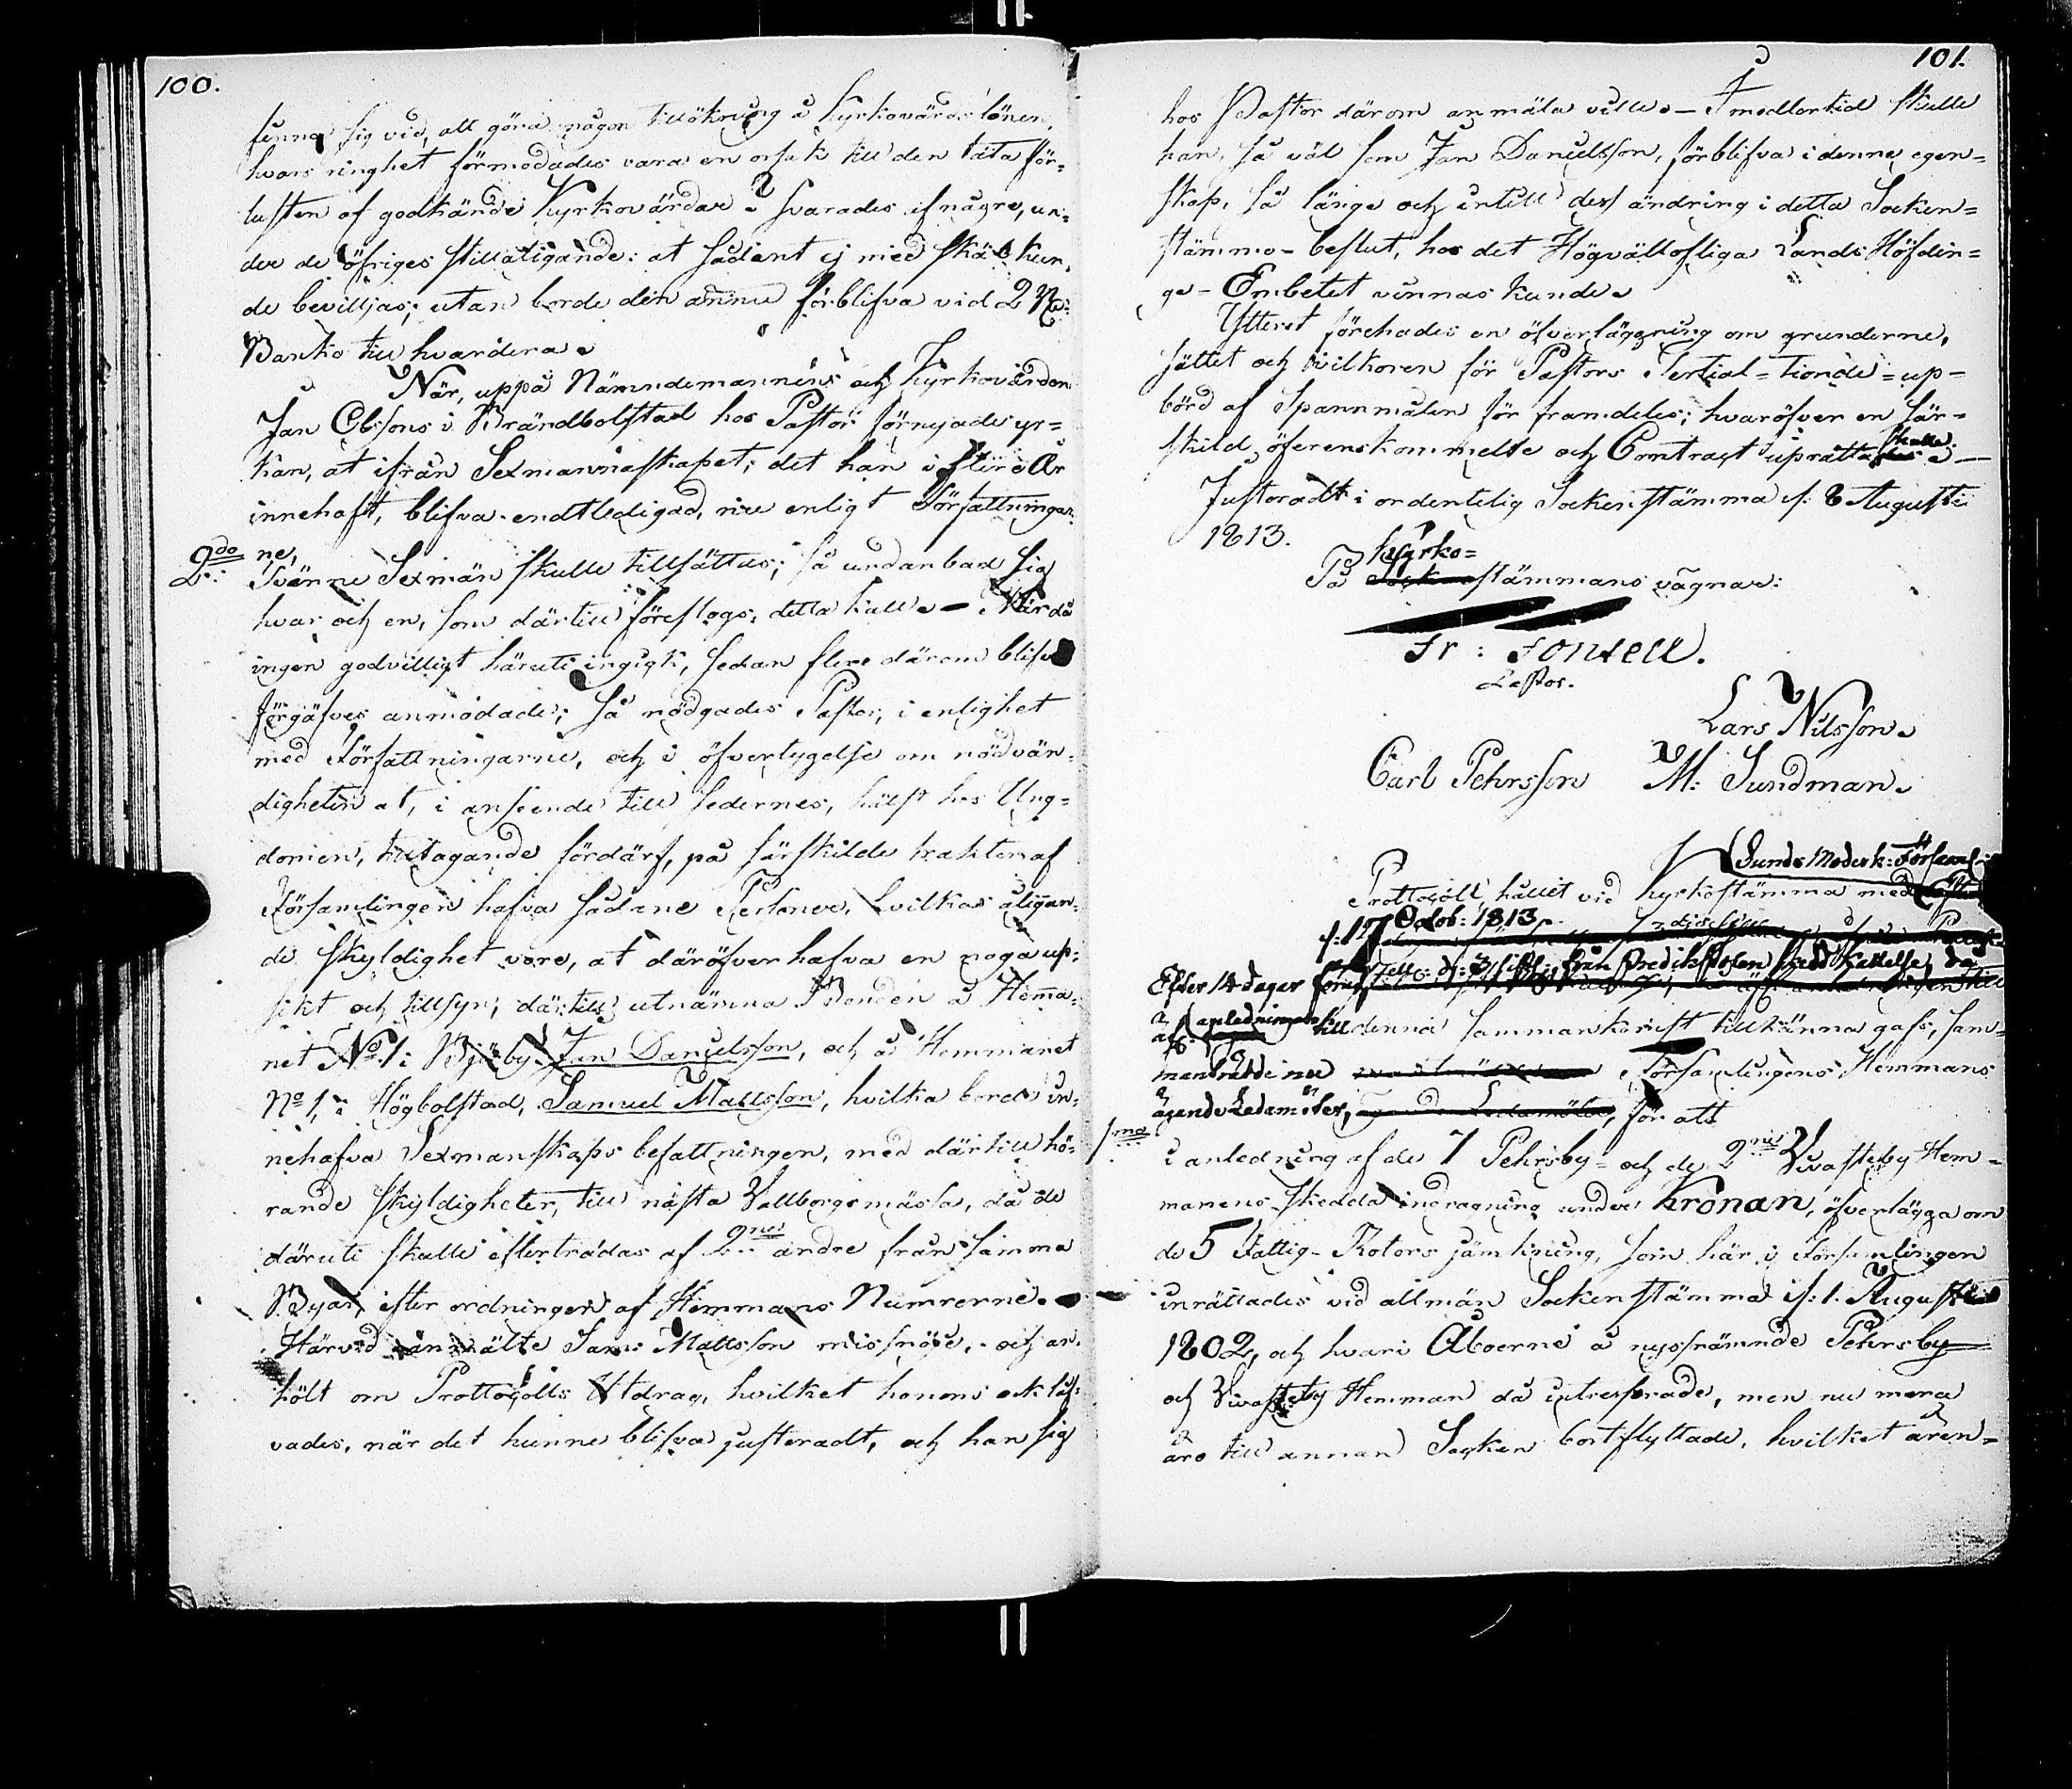 100.
finna sig vid, att göra någon tillökning å Kyrkovärds lönen,
hvars ringhet förmodades vara en orsak till den täta för-
lusten af godkände Kyrkovärdar? svarades af några, un-
der de öfriges stillatigande: at sådant ej med skäl kun-
de beviljas; utan borde den ännu förblifva vid 2 Rd:
Banko till hvardera.
När, uppå Nämndemannens och Kyrkovärden
Jan Ersons i Brändbolstad hos Pastor förnyade yr-
kan, at ifrån Sexmannaskapet, det han i flere År
innehaft, blifva endtledigad, nu enligt Författningar-
2do: ne,
Tvänne Sexmän skulle tillsättas; så undanbad sig
hvar och en, som därtill föreslogs, detta kall. - När då
ingen godvilligt häruti ingick, sedan flere därom blifvit
förgäfves anmodade; så nödgades Pastor, i enlighet
med Författningarne, och i öfvertygelse om nödvän-
digheten at, i anseende till sedernes, hälst hos Ung-
domen, tilltagande fördärf, på särskilde trakter af
Församlingen hafva sådane Personer, hvilkas åliggan-
de skyldighet vore, at däröfver hafva en noga up-
sikt och tillsyn; därtill utnämna Bonden å Hemma-
net No 1 i Björby Jan Danielsson, och å Hemmanet
No 1, i Högbolstad, Samuel Mattsson, hvilka borde in-
nehafva Sexmanskaps befattningen, med därtill hö-
rande skyldigheter, till nästa Vallborgsmässa, då de
däruti skulle efterträdas af 2ne andre från samma
Byar, efter ordningen af Hemmans Numrerne.
Härvid anmälte Sam: Mattsson missnöje, och an-
hölt om Prottocolls Utdrag, hvilket honom ock lof-
vades, när det hunne blifva justeradt, och han sig
101.
hos Pastor därom anmäla ville. - Imedlertid skulle
han, så väl som Jan Danielsson, förblifva i denne egen-
skap, så länge och intill dess ändring i detta Socken-
stämmo-beslut, hos det Högvällofliga Lands Höfdin-
ge-Embetet vinnas kunde.
Ytterst förehades en öfverläggning om grunderne,
sättet och vilkoren för Pastors Tertial-tionde-up-
börd af Spannmålen för framdeles; hvaröfver en sär-
skild öferenskommelse och Contract uprättas skulle.
Justeradt i ordentelig Sockenstämma d: 8 Augusti
1813.
På Kyrko-
stämmans vägnar:
Fr: Fontell.
Pastor.
Lars Nilsson.
Carl Pehrsson M: Sundman.
Sunds Moderk: Församl:
Prottocoll, hållet vid Kyrkostämma med
d: 17 Octob: 1813.
Efter 14 dagar förut från Predikstolen skedd kallelse, då
af anledningen till denna sammankomst tillkänna gafs, sam-
manträdde nu Församlingens Hemmans
ägande Ledamöter, för att
1mo
i anledning af de 7 Pehrsby- och de 2ne Vivasteby Hem-
manens skedda indragning under Kronan, öfverlägga om
de 5 Fattig-Rotors jämkning, som här i Församlingen
inrättades vid allmän Sockenstämma d: 1. Augusti
1802, och hvari Åboerne å nyssnämnde Pehrsby
och Vivasteby Hemman då interesserade, men nu mera
äro till annan Socken bortflyttade, hvilket ären-